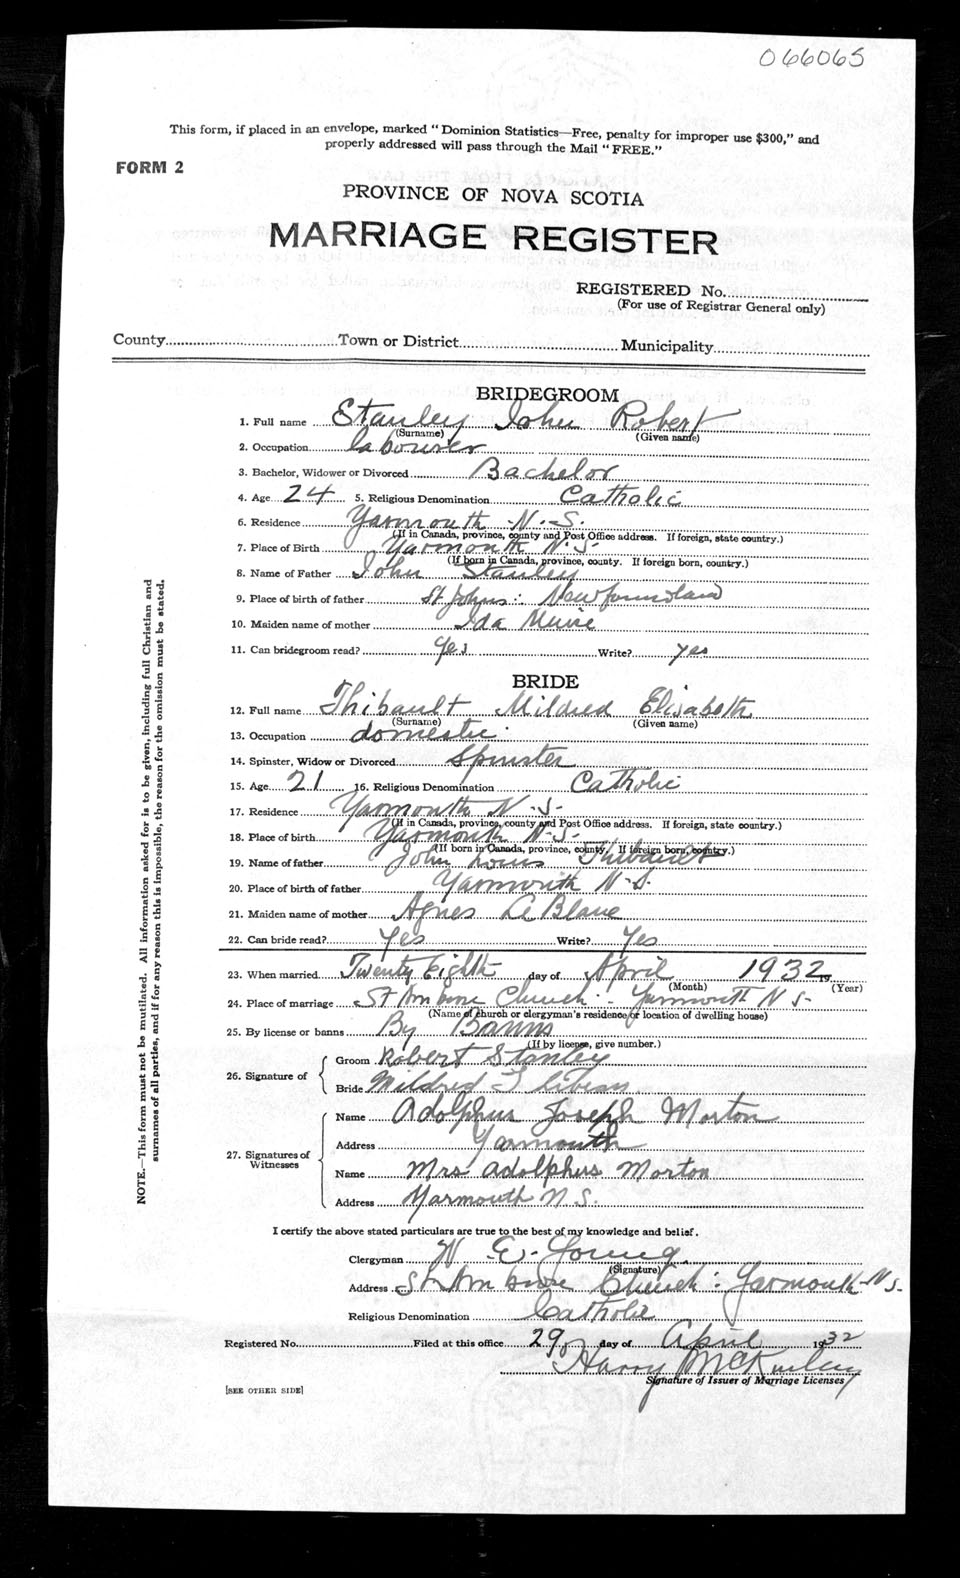 066065
This form, if placed in an envelope, marked "Dominion Statistics—Free, penalty for improper use $300," and
properly addressed will pass through the Mail "FREE."
FORM 2
PROVINCE OF NOVA SCOTIA
MARRIAGE REGISTER
REGISTERED No.
(For use of Registrar General only)
County Town or District Municipality
BRIDEGROOM
1. Full name Stanley John Robert
(Surname) (Given name)
2. Occupation labourer
3. Bachelor, Widower or Divorced Bachelor
4. Age 24 5. Religious Denomination Catholic
6. Residence Yarmouth N.S.
(If in Canada, province, county and Post Office address. If foreign, state country.)
7. Place of Birth Yarmouth N.S.
(If born in Canada, province, county. If foreign born, country.)
8. Name of Father John Stanley
9. Place of birth of father St Johns: Newfoundland
10. Maiden name of mother Ida Muise
11. Can bridegroom read? Yes Write? yes
BRIDE
12. Full name Thibault Mildred Elisabeth
(Surname) (Given name)
13. Occupation domestic
14. Spinster, Widow or Divorced Spinster
15. Age 21 16. Religious Denomination Catholic
17. Residence Yarmouth N.S.
(If in Canada, province, county and Post Office address. If foreign, state country.)
18. Place of birth Yarmouth N.S.
(If born in Canada, province, county. If foreign born, country.)
19. Name of father John Louis Thibault
20. Place of birth of father Yarmouth N.S.
21. Maiden name of mother Agnes Le Blanc
22. Can bride read? Yes Write? Yes
23. When married Twenty Eighth day of April 1932 19
(Month) (Year)
24. Place of marriage St Ambrose Church - Yarmouth N S-
(Name of church or clergyman's residence or location of dwelling house)
25. By license or banns By Banns
(If by license, give number.)
26. Signature of Groom Robert Stanley
Bride Mildred
27. Signatures of Witnesses Name Adolphus Joseph Morton
Address Yarmouth
Name Mrs Adolphus Morton
Address Yarmouth N.S.
I certify the above stated particulars are true to the best of my knowledge and belief.
Clergyman W E. Young
(Signature)
Address St Ambrose Church: Yarmouth N S.
Religious Denomination Catholic
Registered No. Filed at this office 29 day of April 1932
Harry McKinley
Signature of Issuer of Marriage Licenses
[SEE OTHER SIDE]
NOTE.—This form must not be mutilated. All information asked for is to be given, including full Christian and
surnames of all parties, and if for any reason this is impossible, the reason for the omission must be stated.